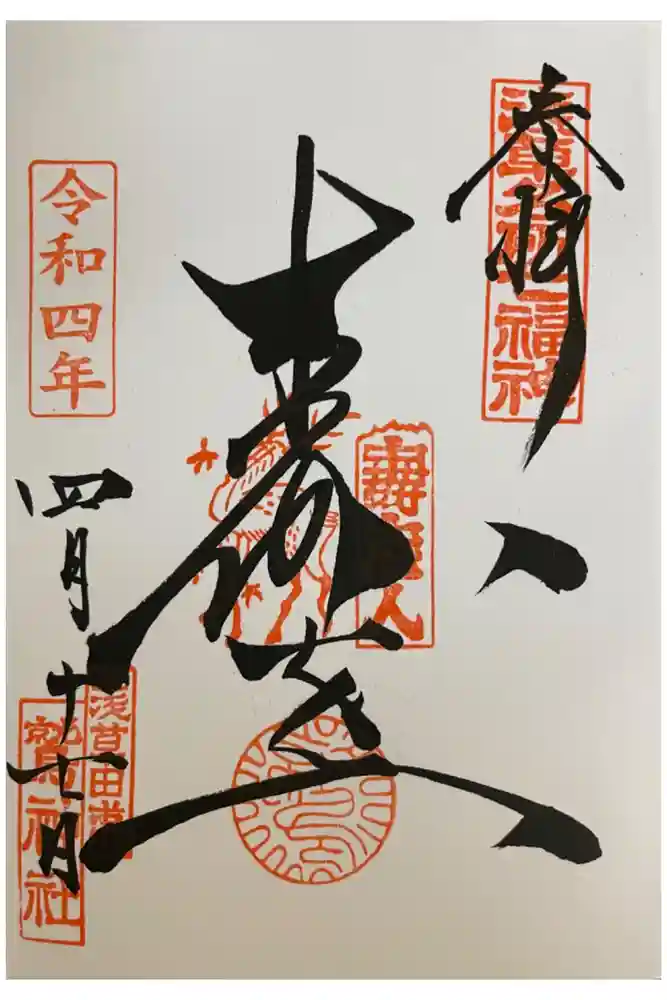 奉拝
浅草名所七福神
壽老人
令和四年
四月十七日
浅草田甫
鷲神社